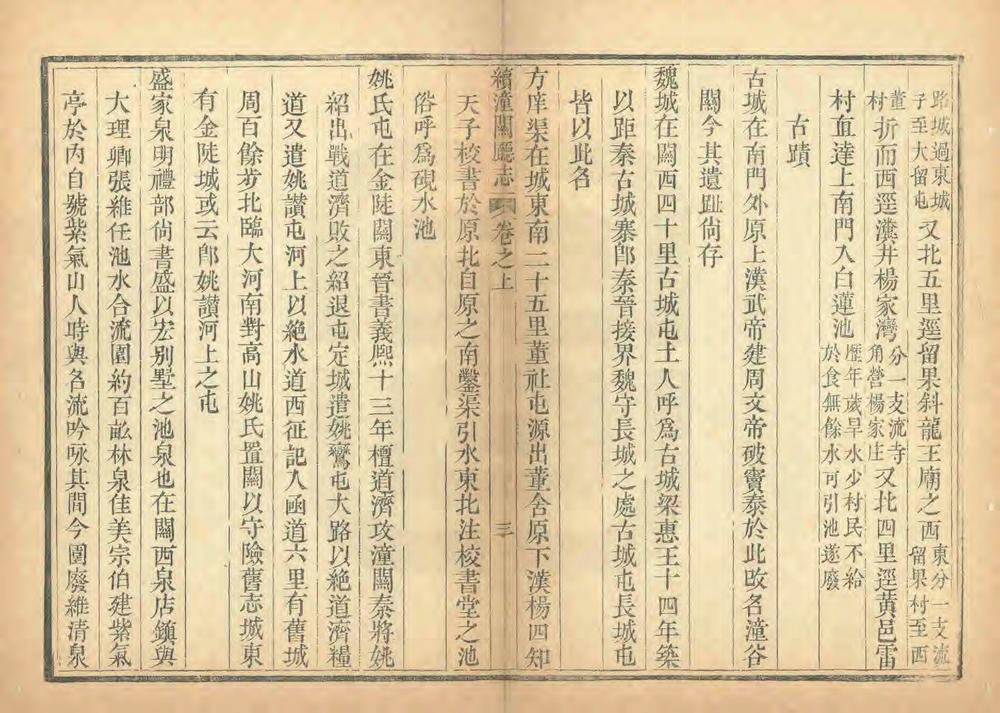 路城過東城子至大留屯又北五里逕留果斜龍王廟之西東分一支流留果村至西
董村折而西逕㵎井楊家灣分一支流寺角營楊家庄又北四里逕黃邑雷
村直達上南門入白蓮池歷年歲旱水少村民不給於食無餘水可引池遂廢
古蹟
古城在南門外原上漢武帝建周文帝破竇泰於此改名潼谷
關今其遺趾尙存
魏城在關西四十里古城屯土人呼爲古城梁惠王十四年築
以距秦古城寨卽秦晉接界魏守長城之處古城屯長城屯
皆以此名
方庠渠在城東南二十五里董社屯源出董舍原下漢楊四知
續潼關廳志 卷之上 三
天子校書於原北自原之南鑿渠引水東北注校書堂之池
俗呼爲硯水池
姚氏屯在金陡關東晉書義熙十三年檀道濟攻潼關秦將姚
紹出戰道濟敗之紹退屯定城遣姚鸞屯大路以絶道濟糧
道又遣姚讃屯河上以絶水道西征記入函道六里有舊城
周百餘步北臨大河南對高山姚氏置關以守險舊志城東
有金陡城或云卽姚讃河上之屯
盛家泉明禮部尙書盛以宏別墅之池泉也在關西泉店鎭與
大理卿張維任池水合流園約百畝林泉佳美宗伯建紫氣
亭於內自號紫氣山人時與名流吟咏其間今園廢維清泉